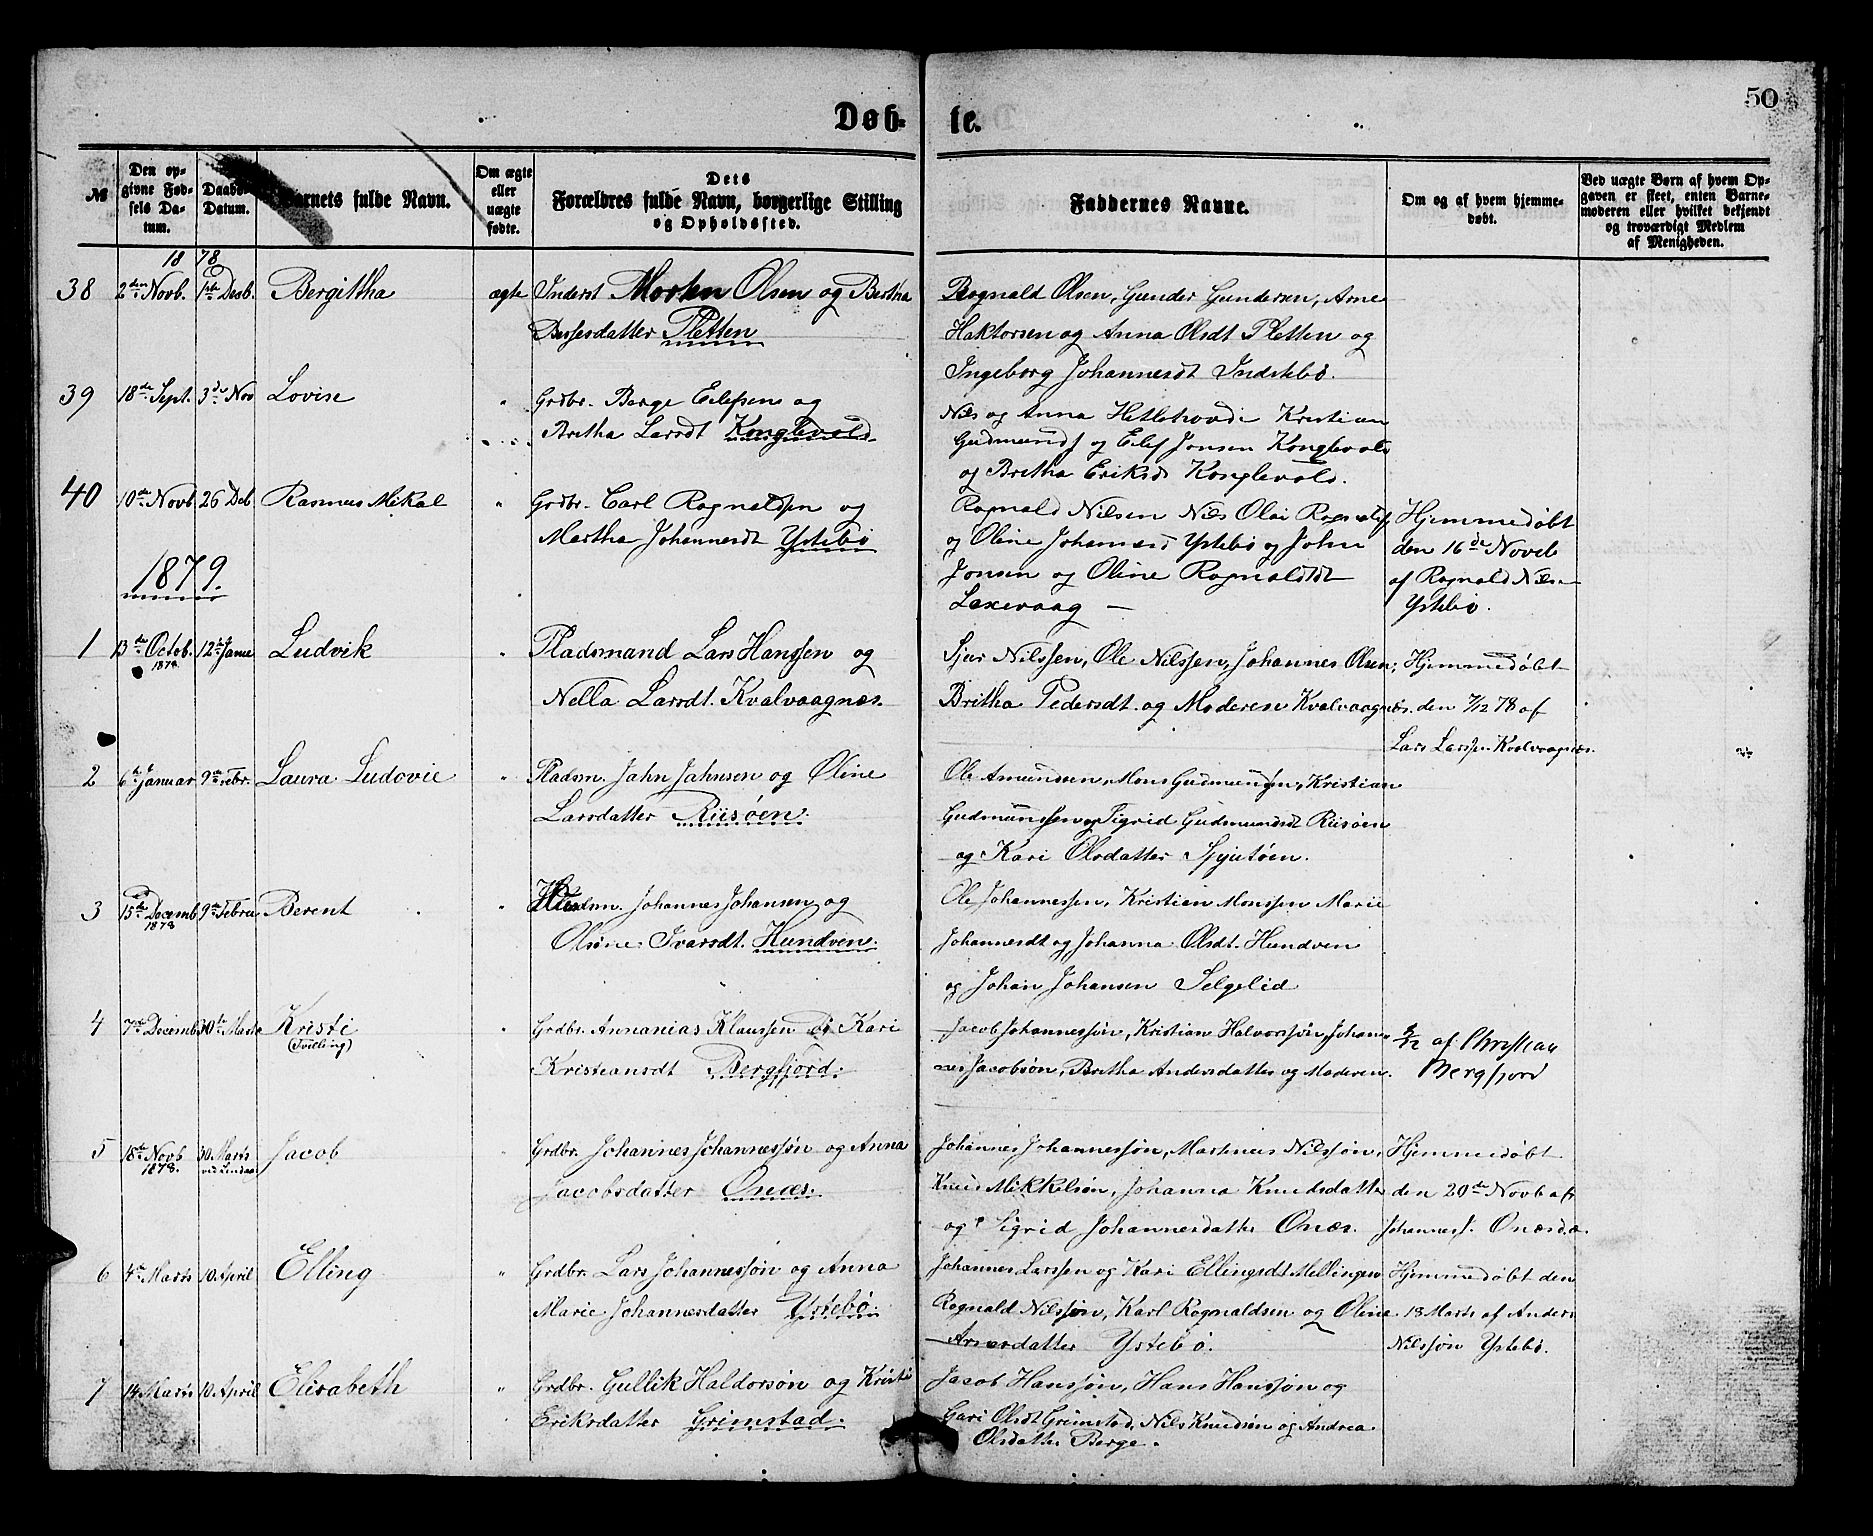 50
Døb- te.
№
Den op-
givne Fød-
sels Da-
tum.
Daabs-
Datum.
Barnets fulde Navn.
Om ægte
eller
uægte
fødte.
Dets
Forældres fulde Navn, borgerlige Stilling
og Opholdssted.
Faddernes Navne.
Om og af hvem hjemme-
døbt.
Ved uægte Børn af hvem Op-
gaven er skeet, enten Barne-
moderen eller hvilket bekjendt
og troværdigt Medlem
af Menigheden.
1878
38 2den Novb. 1ste Desb. Bergittha ægte Inderst Morten Olsen og Bertha
Datter Pletten
Rognald Olsen, Gunder Gundersen, Arne
Haktorsen og Anna Olsdt Pletten og
Ingeborg Johannesdt Indstebø.
39 18de Sept. 3de Nov Lovise " Grdbr. Berge Eilefsen og
Britha Larsdt Konglevold
Nils og Anna Kristian
Gudmunds og Elef Jonsen Konglevold
og Britha Eriksd Konglevold.
40 10de Novb 26 Deb Rasmus Mikal " Grdbr. Carl Rognaldsen og
Martha Johannesdt Ystebø
Rognald Nilsen Nils Olai Rognalds
og Oline Johannesd Ystebø og John
Jonsen og Oline Rognaldsdt
Lexevaag —
Hjemmedøbt
den 16de Novb
af Rognald Nils-
Ystebø.
1879.
1 13de Octob. 1878 12te Janu Ludvik " Pladsmand Lars Hanssen og
Nella Larsdt. Kvalvaagnæs.
Sjur Nilssen, Ole Nilssen, Johannes Olsen;
Britha Pedersdt. og Moderen Kvalvaagnæs.
Hjemmedøbt
den 7/12 78 af
Lars Larss. Kvalvaagnæs.
2 6te Januar 9de Febr. Laura Ludovie " Pladsm. Jahn Jahnsen og Oline
Larsdatter Riisøen.
Ole Amundsen, Mons Gudmundsen, Kristian
Gudmunssen og Sigrid Gudmundsdt Riisøen
og Kari Olsdatter Spjutøen.
3 15de Decemb 1878 9de Februa Berent " Johannes Johansen og
Oline Ivarsdt. Hundven.
Ole Johannessen, Kristian Monssen Marie
Johannesdt og Johanna Olsdt. Hundven
og Johan Johansen Selgelid
4 7de Decemb 30te Marts Kristi
(Tvilling)
" Grdbr. Annanias Klaussen og Kari
Kristiansdt Bergfjord.
Jacob Johannessøn, Kristian Halvorssøn, Johan-
nes Jacobsøn, Britha Andersdatter og Moderen.
af Christian
Bergfjord
5 18de Novb 1878. 30 Marts Jacob Grdbr. Johannes Johannessøn og Anna
Jacobsdatter Onæs.
Johannes Johannessøn, Martinus Nilssøn,
Knud Mikkelsøn, Johanna Knudsdatter
og Sigrid Johannesdatter Onæs.
Hjemmedøbt
den 20de Novb af
Johannes J. Onæs
6 4de Marts 10. April Elling " Grdbr. Lars Johannessøn og Anna
Marie Johannesdatter Ystebø.
Johannes Larssen og Kari Ellingsdt Mellingen
Rognald Nilssøn, Karl Rognaldsen og Oline
Arnesdatter Ystebø.
Hjemmedøbt den
18 Marts af Anders
Nilssøn Ystebø.
7 14 Marts 10. April Elisabeth " Grdbr. Gullik Haldorsøn og Kristi
Eriksdatter Grimstad.
Jacob Hanssøn, Hans Hanssøn og
Gari Olsdt Grimstad, Nils Knudsøn og Andrea
Olsdatter Berge.